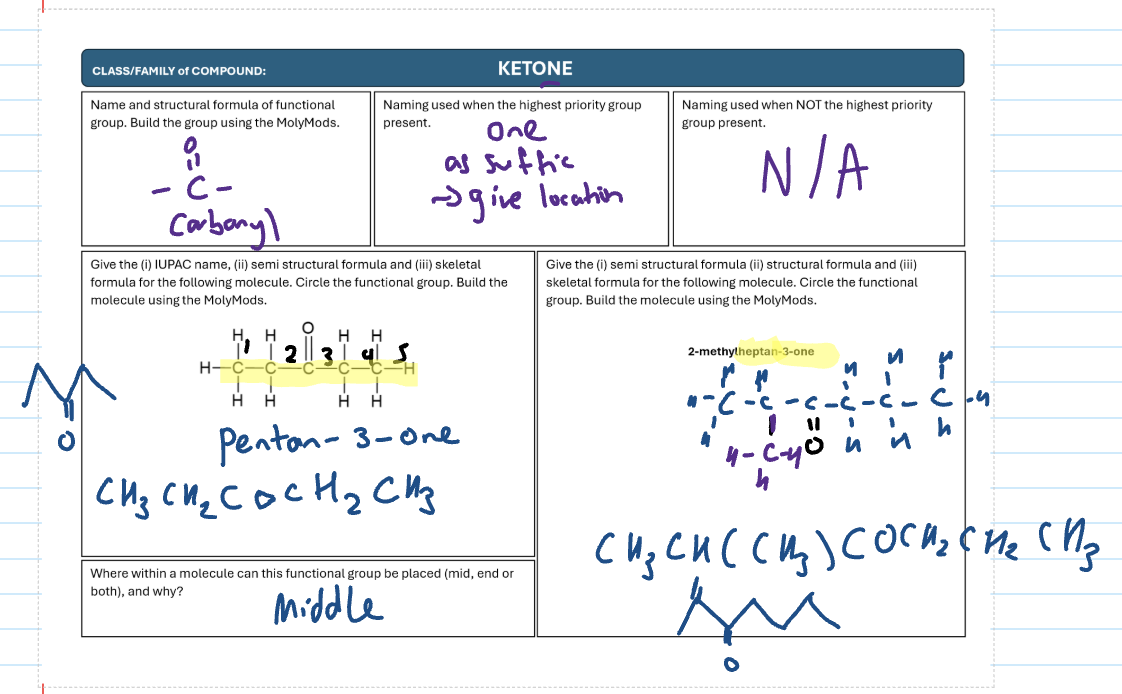 CLASS/FAMILY of COMPOUND: KETONE
Name and structural formula of functional
group. Build the group using the MolyMods.
O
- C -
Carbonyl
Naming used when the highest priority group
present.
one
as suffic
→ give location
Naming used when NOT the highest priority
group present.
N/A
Give the (i) IUPAC name, (ii) semi structural formula and (iii) skeletal
formula for the following molecule. Circle the functional group. Build the
molecule using the MolyMods.
H H O H H
1 2 3 4 5
H-C-C-C-C-C-H
H H H H
O
Pentan-3-one
CH3 CH2 C O C H2 CH3
Give the (i) semi structural formula (ii) structural formula and (iii)
skeletal formula for the following molecule. Circle the functional
group. Build the molecule using the MolyMods.
2-methylheptan-3-one
H H H H H
H-C-C-C-C-C-C-H
H O H H H
H-C-H
H
CH3CH(CH3)COCH2CH2CH3
O
Where within a molecule can this functional group be placed (mid, end or
both), and why?
Middle